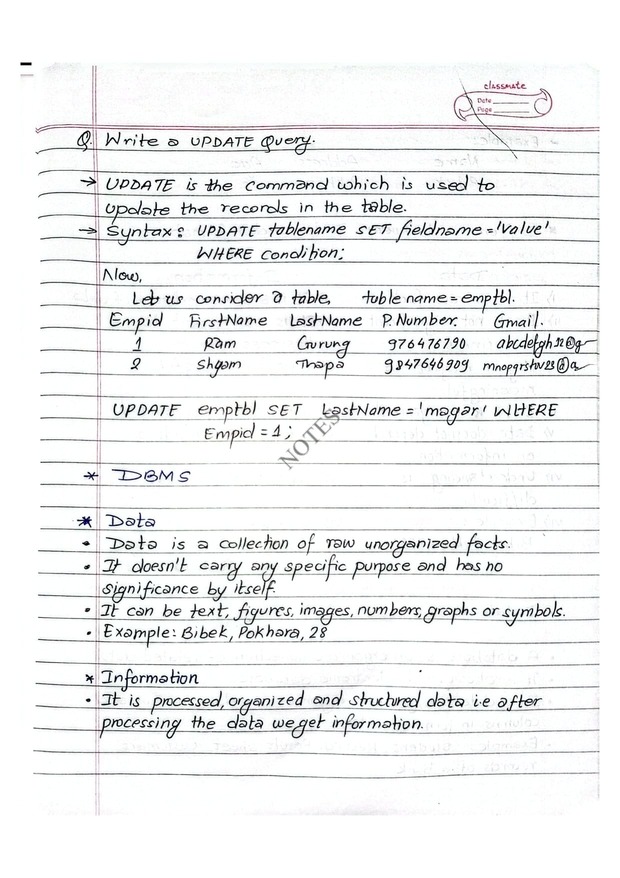 classmate
Date
Page
Q. Write a UPDATE Query.
→ UPDATE is the command which is used to
update the records in the table.
→ Syntax: UPDATE tablename SET fieldname = 'value'
WHERE condition;
Now,
Let us consider a table, table name = emptbl.
Empid FirstName LastName P.Number. Gmail.
1 Ram Gurung 976476790 abcdefgh12@g
2 Shyam Thapa 9847646909 mnopqrstuv23@a
UPDATE emptbl SET LastName = 'magar' WHERE
Empid = 1;
NOTES
* DBMS
* Data
• Data is a collection of raw unorganized facts.
• It doesn't carry any specific purpose and has no
significance by itself.
• It can be text, figures, images, numbers, graphs or symbols.
• Example: Bibek, Pokhara, 28
* Information
• It is processed, organized and structured data i.e after
processing the data we get information.